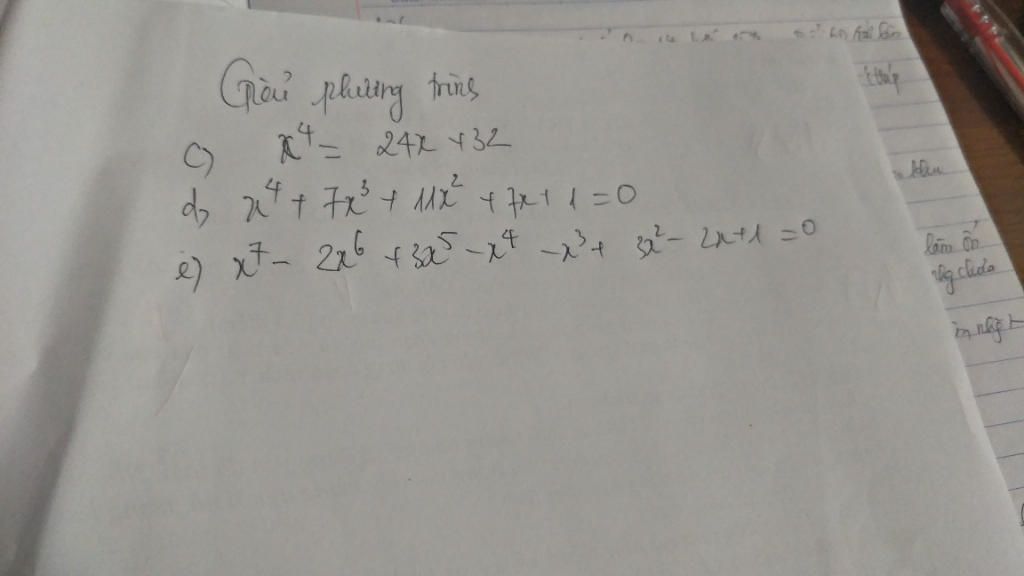 Giải phương trình
c) x⁴ = 24x + 32
d) x⁴ + 7x³ + 11x² + 7x + 1 = 0
e) x⁷ - 2x⁶ + 3x⁵ - x⁴ - x³ + 3x² - 2x + 1 = 0